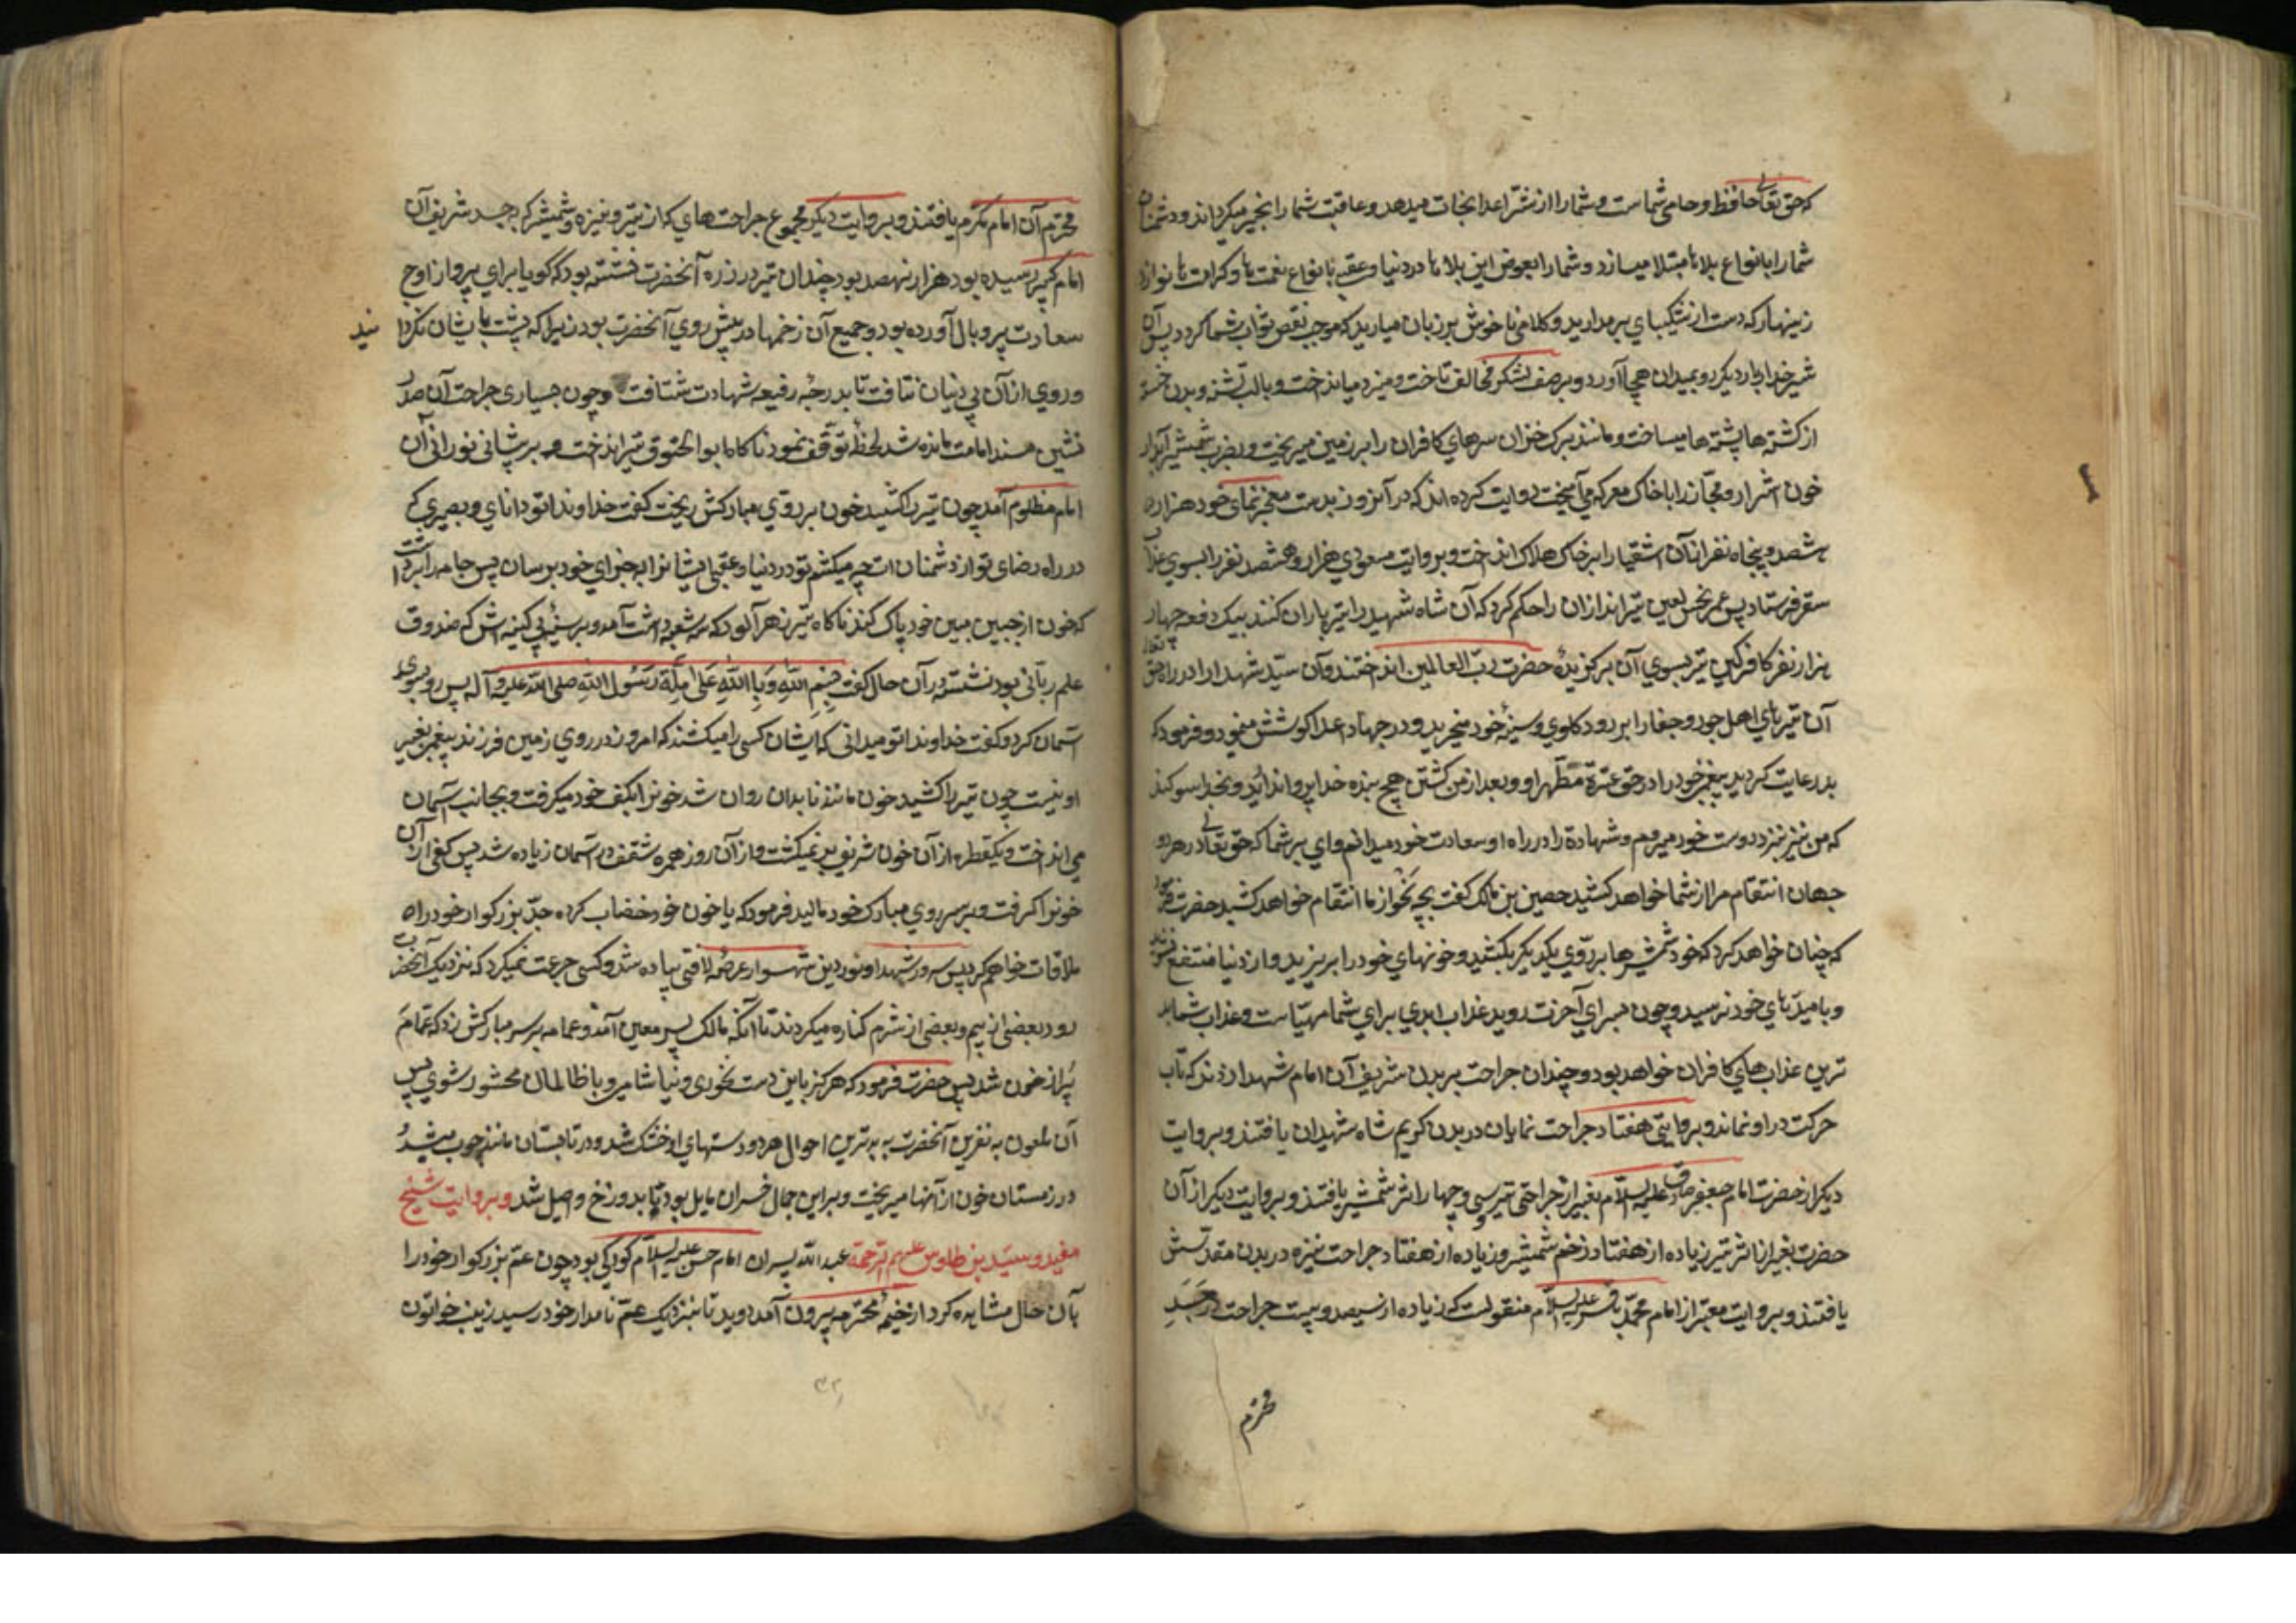 که حق تعالی حافظ و حامی شماست و شما را از شر اعدا نجات میدهد و عاقبت شما را بخیر میکرداند و دشمنان
شما را بانواع بلاها مبتلا میسازد و شما را بعوض این بلاها در دنیا و عقبی بانواع نعمت ها و کرامت ها نوازد
زینهار که دست از شکیبای برمدارید و کلامی ناخوش بر زبان میارید که موجب نقص ثواب شما کردد پس آن
شیر خدا بار دیکر رو بمیدان هیجا آورد و بر صف لشکر مخالف تاخت و میزد و میانداخت و با لب تشنه و بدن خسته
از کشته ها پشته ها میساخت و مانند برک خزان سرهای کافران را بر زمین میریخت و بضرب شمشیر آبدار
خون اشرار و فجار را با خاک معرکه می آمیخت روایت کرده اند که در آنروز بدست معجزنمای خود هزار و
نهصد و پنجاه نفر از آن اشقیا را بر خاک هلاک انداخت و بروایت مسعودی هزار و هشتصد نفر را بسوی عذاب
سقر فرستاد پس عمر نحس لعین تیراندازان را حکم کرد که آن شاه شهید را تیرباران کنند بیک دفعه چهار
هزار نفر کافر کین تیر بسوی آن برکزیدهٔ حضرت رب العالمین انداختند و آن سید شهدا در راه حق تعالی
آن تیرهای اهل جور و جفا را بر رو و کلوی و سینهٔ خود میخرید و در جهاد اعدا کوشش مینمود و فرمود که
بد رعایت کردید پیغمبر خود را در حق عترة مطهر او و بعد از من کشتن هیچ بنده خدا پروا ندارید و بخدا سوکند
که من نیز بنزد دوست خود میروم و شهادة را در راه او سعادت خود میدانم و ای بر شما که حق تعالی در هر دو
جهان انتقام مرا از شما خواهد کشید حصین بن مالک کفت بچه نحو از ما انتقام خواهد کشید حضرت فرمود
که چنان خواهد کرد که خود شمشیرها بر روی یکدیکر بکشید و خونهای خود را بریزید و از دنیا منتفع نشوید
و بامیدهای خود نرسید و چون بسرای آخرت روید عذاب ابدی برای شما مهیاست و عذاب شما بد
ترین عذاب های کافران خواهد بود و چندان جراحت بر بدن شریف آن امام شهدا زدند که تاب
حرکت در او نماند و بروایتی هفتاد جراحت نمایان در بدن کریم شاه شهیدان یافتند و بروایت
دیکر از حضرت امام جعفر صادق علیه السلام بغیر از جراحتی تیر سی و چهار اثر شمشیر یافتند و بروایت دیکر از آن
حضرت بغیر از اثر تیر زیاده از هفتاد زخم شمشیر و زیاده از هفتاد جراحت نیزه در بدن مقدسش
یافتند و بروایت معتبر از امام محمد باقر علیه السلام منقولست که زیاده از سیصد و بیست جراحت در جسد
محترم
محترم آن امام مکرم یافتند و بروایت دیکر مجموع جراحت های که از تیر و نیزه و شمشیر که بجسد شریف آن
امام کبیر رسیده بود هزار و نهصد بود چندان تیر در زره آنحضرت نشسته بود که کویا برای پرواز اوج
سعادت پر و بال آورده بود و جمیع آن زخمها در پیش روی آنحضرت بود زیرا که پشت بایشان نکردا
نید
و روی از آن بی دینان نتافت تا بدرجهٔ رفیعه شهادت شتافت و چون بسیاری جراحت آن صدر
نشین مسند امامت مانده شد لحظهٔ توقف نمود ناکاه ابو الحتوق تیر انداخت و بر پشانی نورانی آن
امام مظلوم آمد چون تیر را کشید خون بر روی مبارکش ریخت کفت خداوندا تو دانای و بصیری که
در راه رضای تو از دشمنان ات چه میکشم تو در دنیا و عقبی ایشانرا بجزای خود برسان پس جامه را برداشت
که خون از جبین مبین خود پاک کند ناکاه تیر زهرآلود که سه شعبه داشت آمد و بر سینهٔ بی کینه اش که صندوق
علم ربانی بود نشست در آن حال کفت بِسْمِ اللّٰهِ وَ بِاللّٰهِ عَلَیٰ مِلَّةِ رَسُولِ اللّٰهِ صلی الله علیه و آله پس رو بسوی
آسمان کرد و کفت خداوندا تو میدانی که ایشان کسی را میکشند که امروز در روی زمین فرزند پیغمبر بغیر
او نیست چون تیر را کشید خون مانند نابدان روان شد خونرا بکف خود میکرفت و بجانب آسمان
می انداخت و یکقطره از آن خون شریف بر نمیکشت و از آن روز حمره شفق در آسمان زیاده شد پس کفی از آن
خونرا کرفت و بر سر و روی مبارک خود مالید فرمود که با خون خود خضاب کرده جد بزرکوار خود را
ملاقات خواهم کرد پس سرور شهدا و نور دین شهسوار عرصهٔ لافتی پیاده شد و کسی جرعت نمیکرد که نزدیک آنحضرت
رود بعضی از بیم و بعضی از شرم کناره میکردند تا آنکه مالک پسر معین آمد و عمامه بر سر مبارکش زد که تمامَ
پر از خون شد پس حضرت فرمود که هرکز باین دست نخوری و نیاشامی و با ظالمان محشور شوی پس
آن ملعون به نفرین آنحضرت به بدترین احوال هر دو دستهای او خشک شد و در تابستان مانند چوب میشد و
در زمستان خون از آنها میریخت و براین حال خسران مایل بود تا بدوزخ واصل شد و بروایت شیخ
مفید و سید بن طاوس علیهم الرحمة عبد الله پسران امام حسن علیه السلام کودکی بود چون عم بزرکوار خود را
بآن حال مشاهده کرد از خیمهٔ محترمه بیرون آمد دوید تا بنزدیک عم نامدار خود رسید زینب خواتون